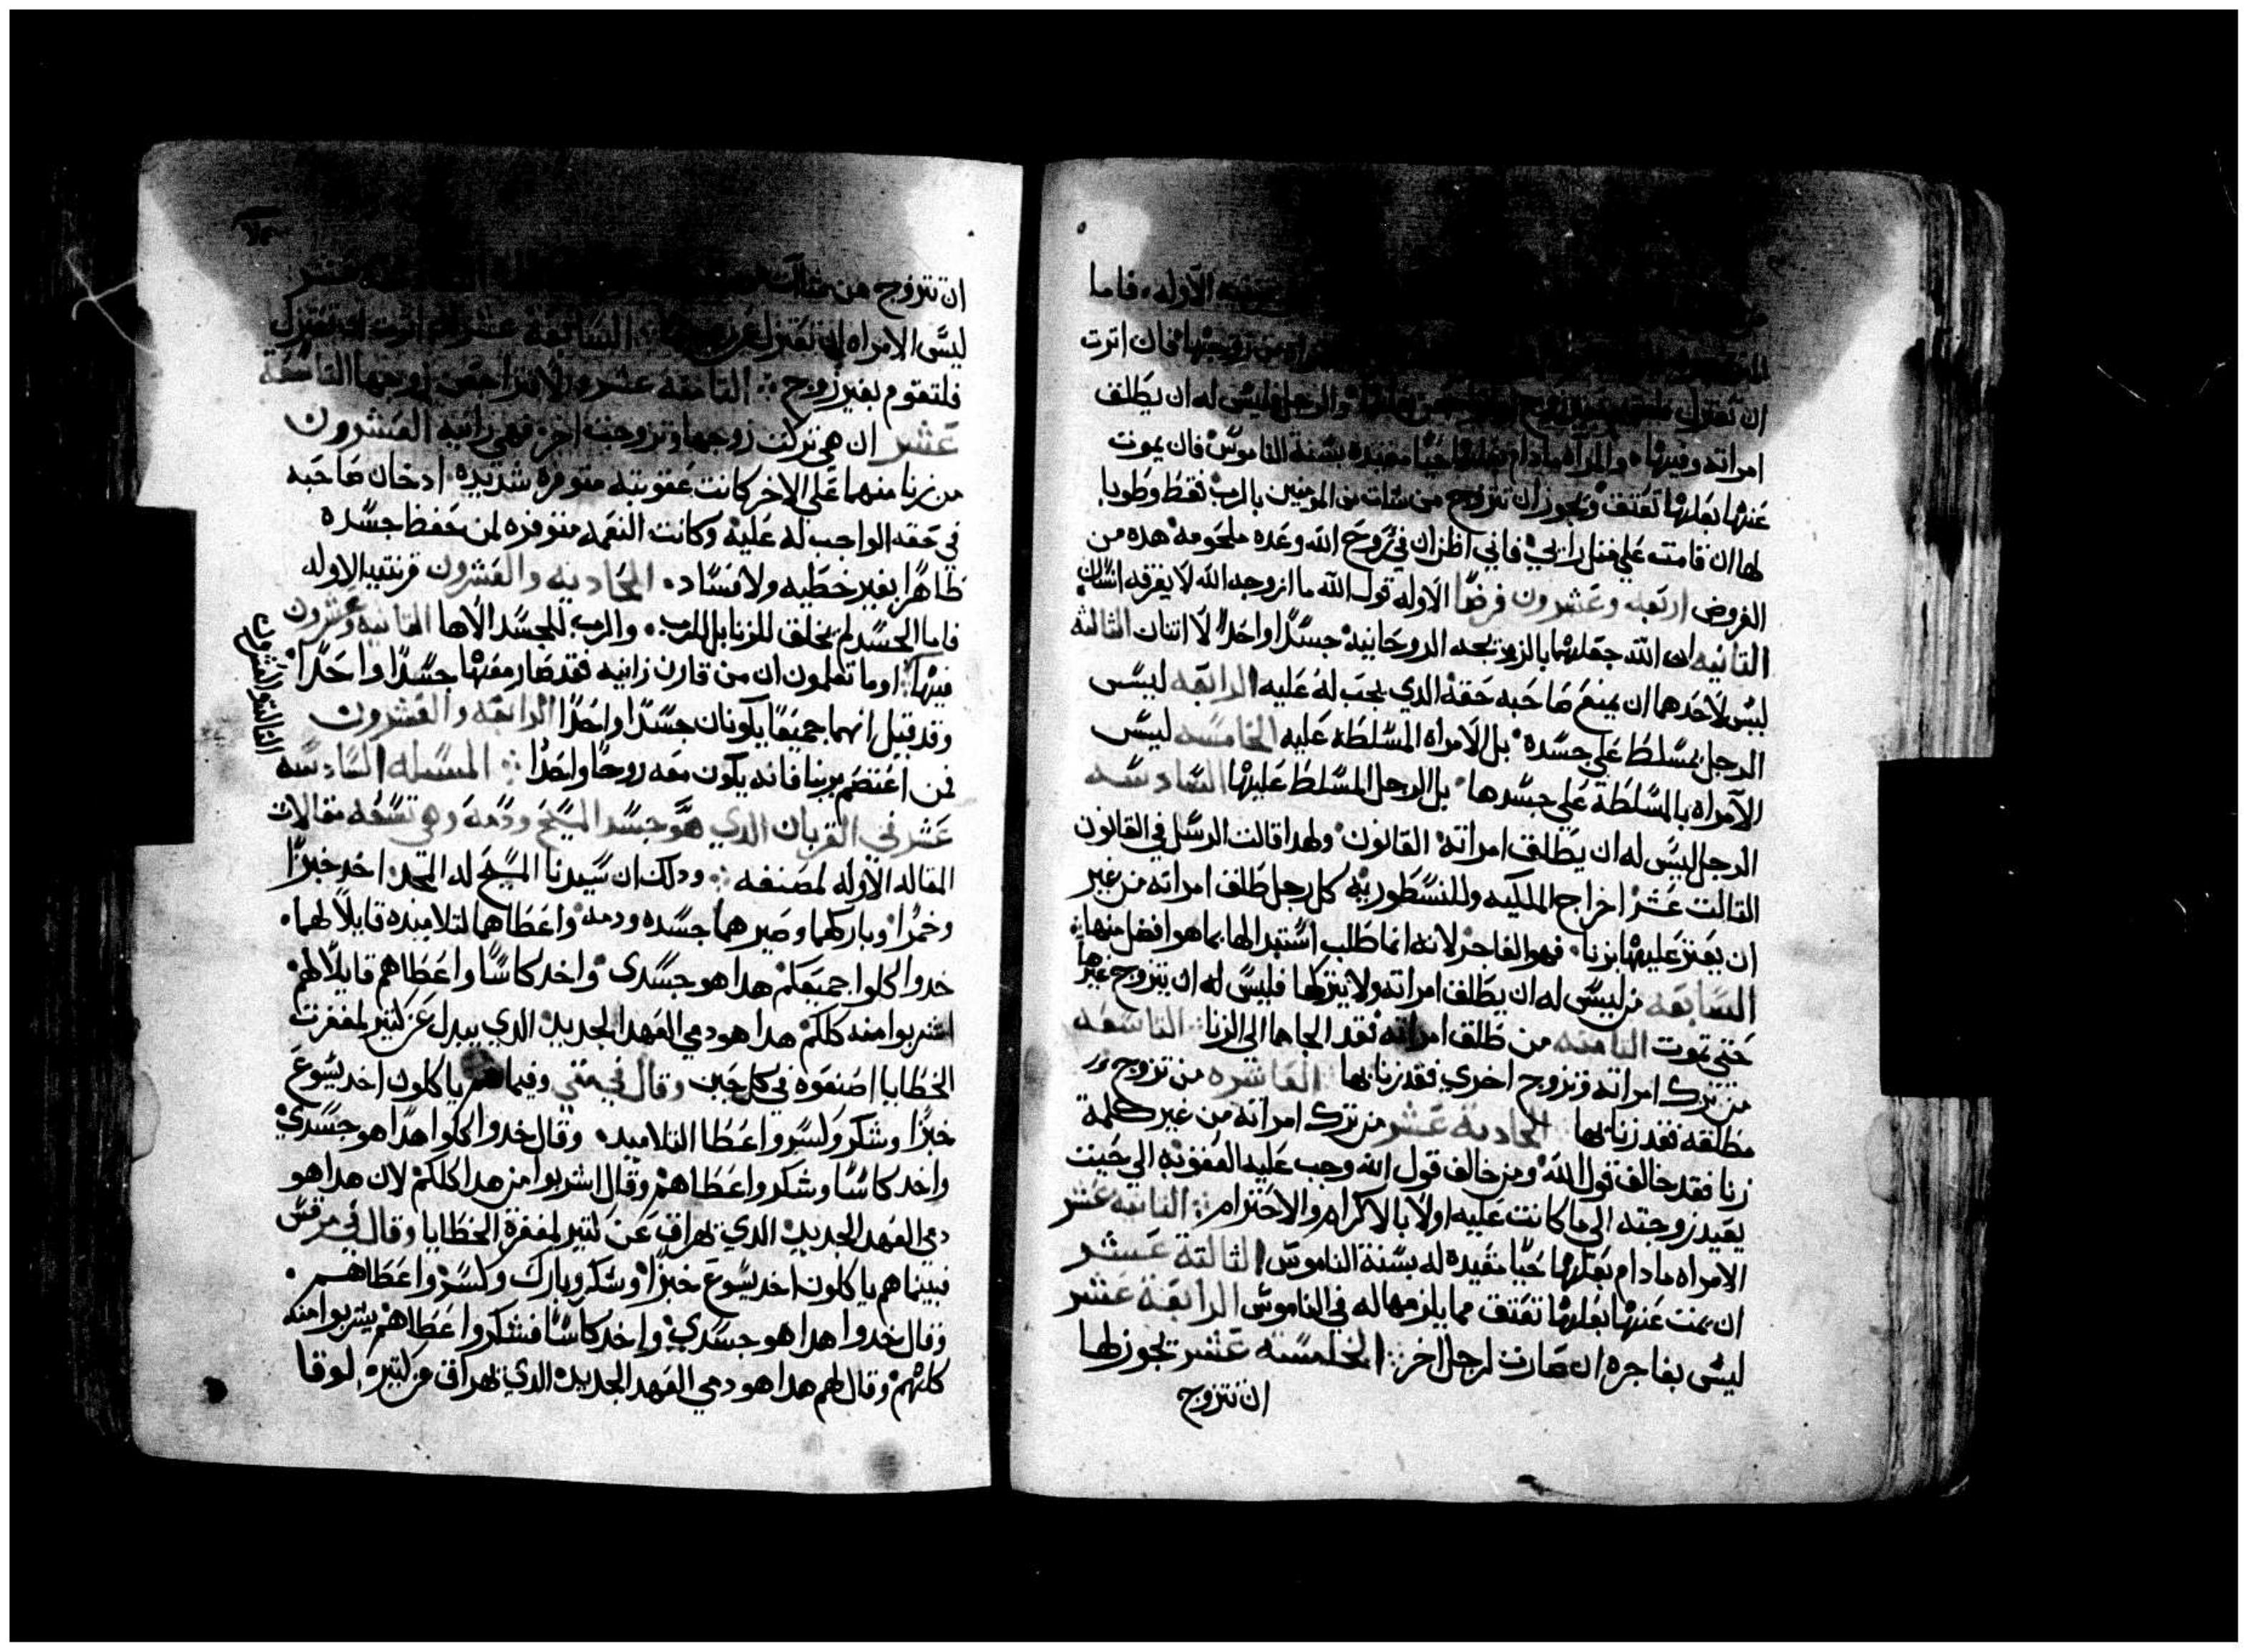 الاوله، فاما
زوجها فان اترت
ان تعتزل فلتقوم بغير زوج والرجل فليس له ان يطلق
امراته وفيها والمراه مادام بعلها حيًا مقيده بسنة الناموس فان يموت
عنها بعلها تعتق ويجوز ان تتزوج من شات من المومنين بالرب فقط وطوبا
لها ان قامت علي متل رايي فاني اظن ان في روح الله وعده ملحومه هده من
الفروض اربعه وعشرون فرضًا الاوله قول الله ما ازوجه الله لا يفرقه انسان
التانيه ان الله جعلهما بالزيجه الروحانيه جسدًا واحدًا لا اتنان التالته
ليس لاحدهما ان يمنع صاحبه حقه الدي يجب له عليه الرابعه ليس
الرجل بمسلط علي جسده بل الامراه المسلطه عليه الخامسه ليس
الامراه بالمسلطة علي جسدها بل الرجل المسلط عليها السادسه
الرجل ليس له ان يطلق امراته القانون ولهدا قالت الرسل في القانون
التالت عشر اخراج الملكيه وللنسطوريه كل رجل طلق امراته من غير
ان يعتر عليها بزنا فهو الفاجر لانه انما طلب استبدالها بما هو افضل منها
السابعه من ليس له ان يطلق امراته ولا يتركها فليس له ان يتزوج غيرها
حتي تموت التامنه من طلق امراته فقد الجاها الي الزنا التاسعه
من ترك امراته وتزوج اخري فقد زنا بها العاشره من تزوج
مطلقه فقد زنا بها الحادية عشر من ترك امراته من غير كلمة
زنا فقد خالف قول الله ومن خالف قول الله وجب عليه العقوبه الي حيت
يعيد زوجته الي ما كانت عليه اولًا بالاكرام والاحترام التانيه عشر
الامراه مادام بعلها حيًا مقيده له بسنة الناموس التالتة عشر
ان يمت عنها بعلها تعتق مما يلزمها له في الناموس الرابعة عشر
ليس بفاجره ان صارت لرجل اخر الخامسه عشر تجوز لها
ان تتزوج
ان تتزوج من شات عشر
ليس الامراه ان تعتزل عن زوجها السابعه عشر ان اترت ان تعتزل
فلتقوم بغير زوج التامنه عشر والا فتراجع زوجها التاسعة
عشر ان هي تركت زوجها وتزوجت اخر فهي زانيه العشرون
من زنا منهما علي الاخر كانت عقوبته متوفره شديده اد خان صاحبه
في حقه الواجب له عليه وكانت النعمه متوفره لمن حفظ جسده
طاهرًا بغير خطيه ولا فساد الحاديه والعشرون قرنتيه الاوله
فاما الجسد لم يخلق للزنا بل للرب والرب للجسد الاها التانيه وعشرون
فيها اوما تعلمون ان من قارن زانيه فقد صار معها جسدًا واحدًا
التالته والعشرون
وقد قيل انهما جميعًا يكونان جسدًا واحدًا الرابعه والعشرون
فمن اعتصم بربنا فانه يكون معه روحًا واحدًا المسله السادسه
عشر في القربان الدي هو جسد المسيح ودمه وهي تسعه مقالات
المقاله الاوله لمصنفه ودلك ان سيدنا المسيح له المجد اخد خبزًا
وخمرًا وباركهما وصيرهما جسده ودمه واعطاهما لتلاميده قايلًا لهما
خدوا كلوا جميعكم هدا هو جسدى واخد كاسًا واعطاهم قايلًا لهم
اشربوا منه كلكم هدا هو دمي العهد الجديد الدي يبدل عن كتير لمغفرت
الخطايا اصنعوه في كل حين وقال في متي وفيما هم ياكلون اخد يسوع
خبزًا وشكر وكسر واعطا التلاميد وقال خدوا كلوا هدا هو جسدي
واخد كاسًا وشكر واعطاهم وقال اشربوا من هدا كلكم لان هدا هو
دمي العهد الجديد الدي يهراق عن كتير لمغفرة الخطايا وقال في مرقس
فبينما هم ياكلون اخد يسوع خبزًا وشكر وبارك وكسر واعطاهم
وقال خدوا هدا هو جسدي واخد كاسًا فشكر واعطاهم يشربوا منه
كلهم وقال لهم هدا هو دمي العهد الجديد الدي يهراق عن كتيره لوقا